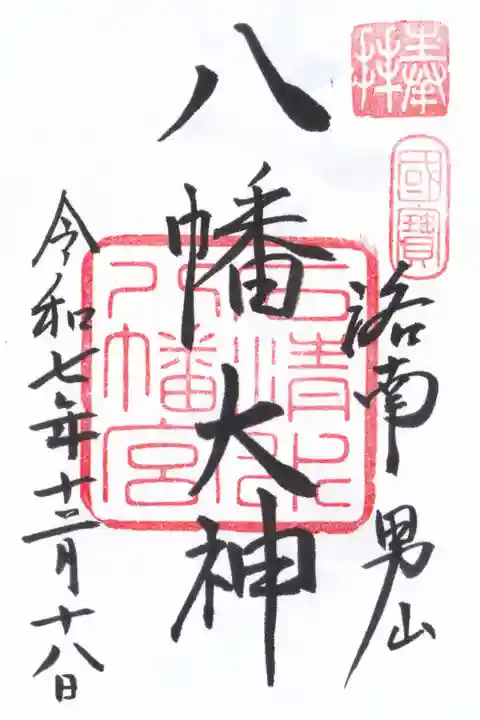 奉拝
國寶
洛南 男山
八幡大神
石清水八幡宮
令和七年十二月十八日